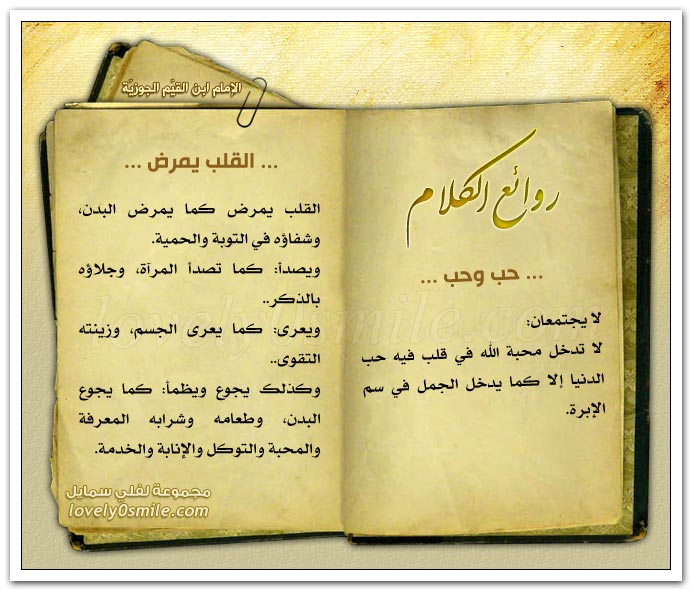 الإمام ابن القيَّم الجوزيَّة
روائع الكلام
... حب وحب ...
لا يجتمعان:
لا تدخل محبة الله في قلب فيه حب
الدنيا إلا كما يدخل الجمل في سم
الإبرة.
... القلب يمرض ...
القلب يمرض كما يمرض البدن،
وشفاؤه في التوبة والحمية.
ويصدأ: كما تصدأ المرآة، وجلاؤه
بالذكر..
ويعرى: كما يعرى الجسم، وزينته
التقوى..
وكذلك يجوع ويظمأ: كما يجوع
البدن، وطعامه وشرابه المعرفة
والمحبة والتوكل والإنابة والخدمة.
مجموعة لفلي سمايل
lovely0smile.com
lovely0smile.com